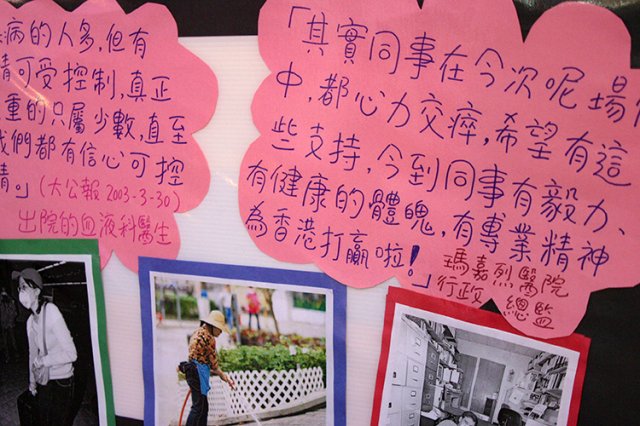 病的人多,但有
情可受控制,真正
重的只屬少數,直至
我們都有信心可控
情。」(大公報 2003-3-30)
出院的血液科醫生
「其實同事在今次呢場
中,都心力交瘁,希望有這
些支持,令到同事有毅力、
有健康的體魄,有專業精神
為香港打贏啦!」
瑪嘉烈醫院
行政 總監